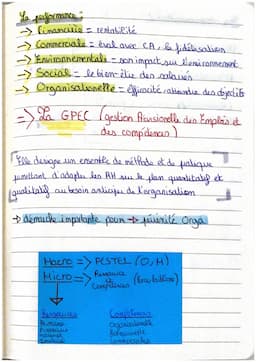 La performance :
→ Financière = rentabilité
→ Commerciale = éval avec CA, la fidélisation
→ Environnementale = son impact sur l'environnement
→ Social = le bien-être des salariés
→ Organisationnelle = efficacité, atteindre des objectifs
=> La GPEC (gestion Prévisionnelle des Emplois et
des compétences)
Elle désigne un ensemble de méthode et de pratique
permettant d'adapter les RH sur le plan quantitatif et
qualitatif au besoin anticipé de l'organisation
→ démarche importante pour → pérénité Orga
Macro => PESTEL (O, M)
Micro => Ressource et Compétences (
Ressources Compétences
Humaine Organisationnelle
Financières